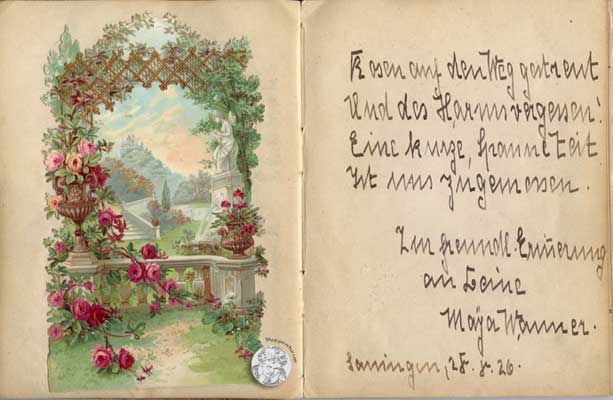 Rosen auf den Weg gestreut
Und des Harms vergessen!
Eine kurze, Spanne Zeit
Ist uns zugemessen.
Zur freundl. Erinnerung
an Deine
Maja Wanner.
26.